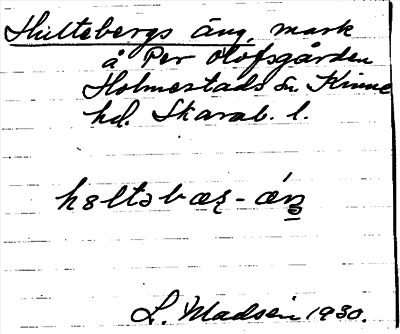 Hultebergs äng, mark
å Per Olofsgården
Holmestads sn Kinne
hd. Skarab. l.
hɵltəbæʀ-ǽŋ
L. Madsén 1930.